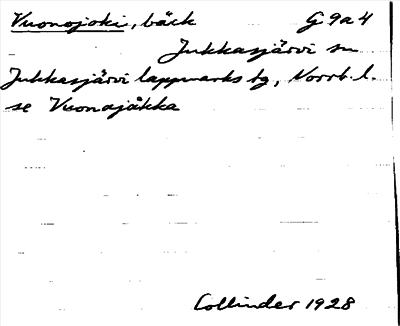 Vuonojoki, bäck G9a4
Jukkasjärvi sn
Jukkasjärvi lappmarks tg, Norrb. l.
se Vuonajåkka
Collinder 1928